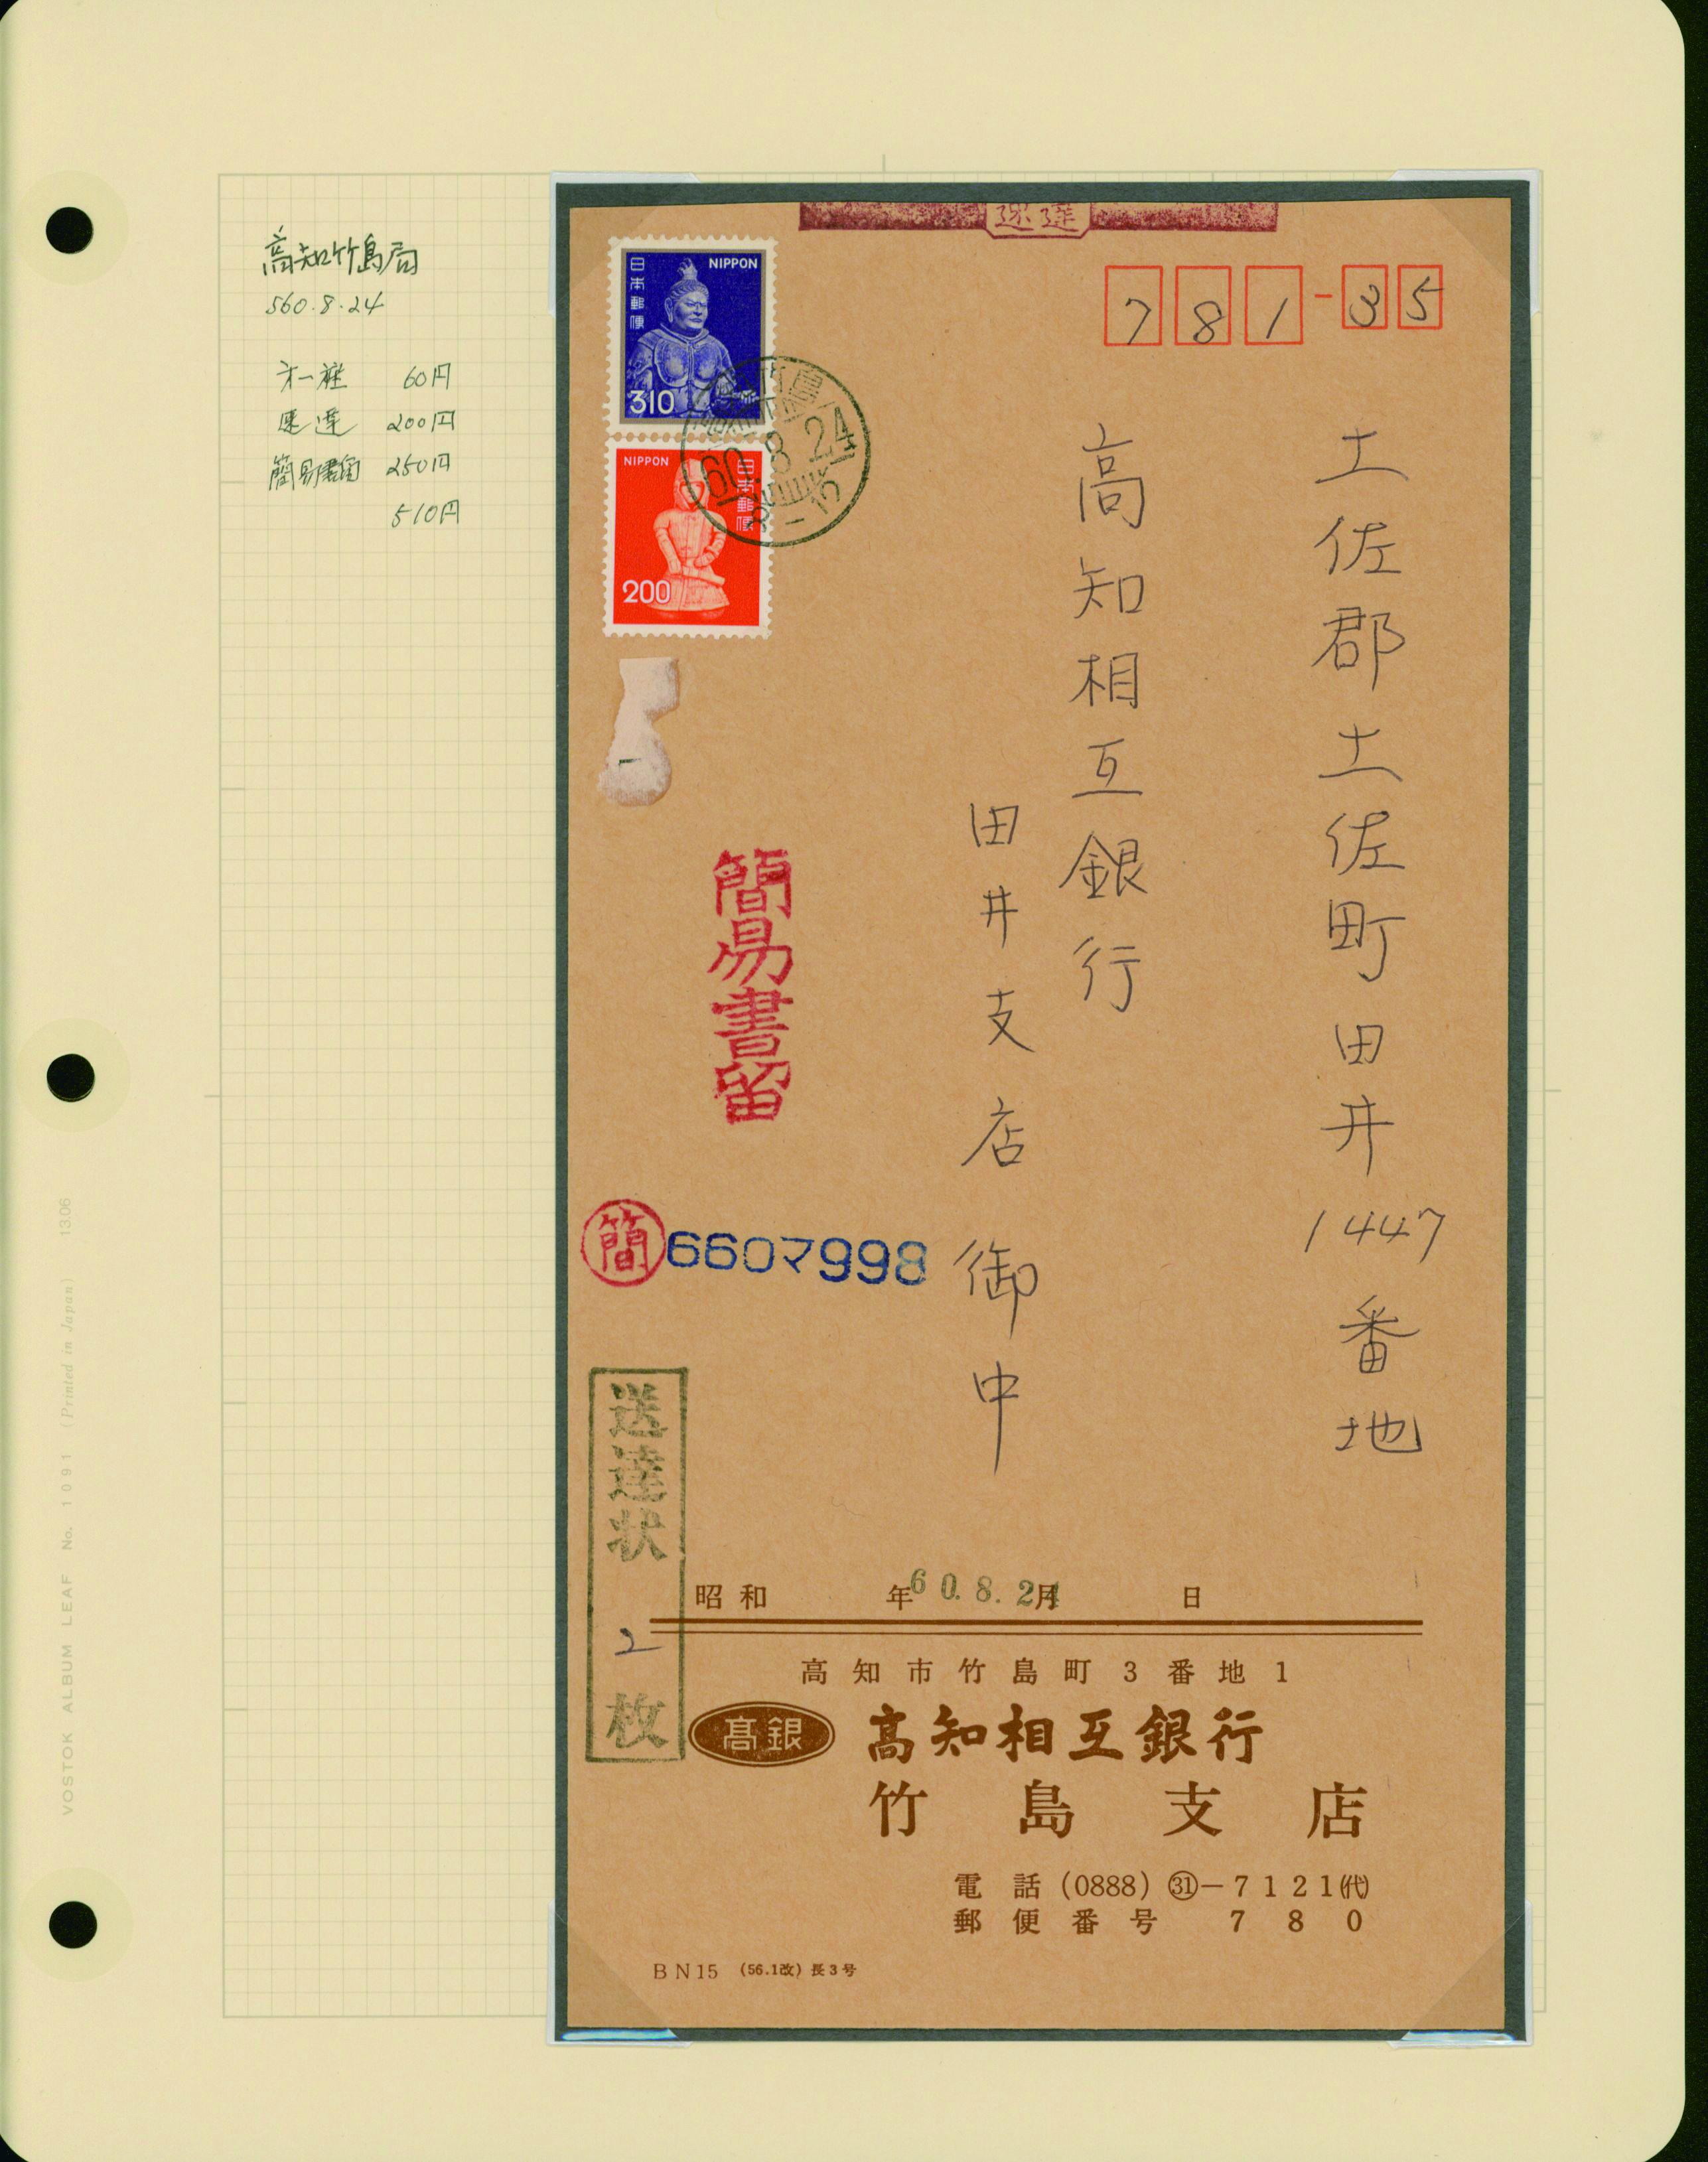 高知竹島局
S60.8.24
才一種 60円
速達 200円
簡易書留 250円
510円
速達
日本郵便
NIPPON
310
NIPPON
日本郵便
200
竹島
60.8.24
8-12
781-35
土佐郡土佐町田井1447番地
高知相互銀行
田井支店御中
簡易書留
簡
660マ998
送達状 2枚
昭和 年 月 日
60.8.24
高知市竹島町3番地1
高銀
高知相互銀行
竹島支店
電話(0888)㉛-7121(代)
郵便番号 780
BN15 (56.1改) 長3号
VOSTOK ALBUM LEAF No. 1091 (Printed in Japan) 1306